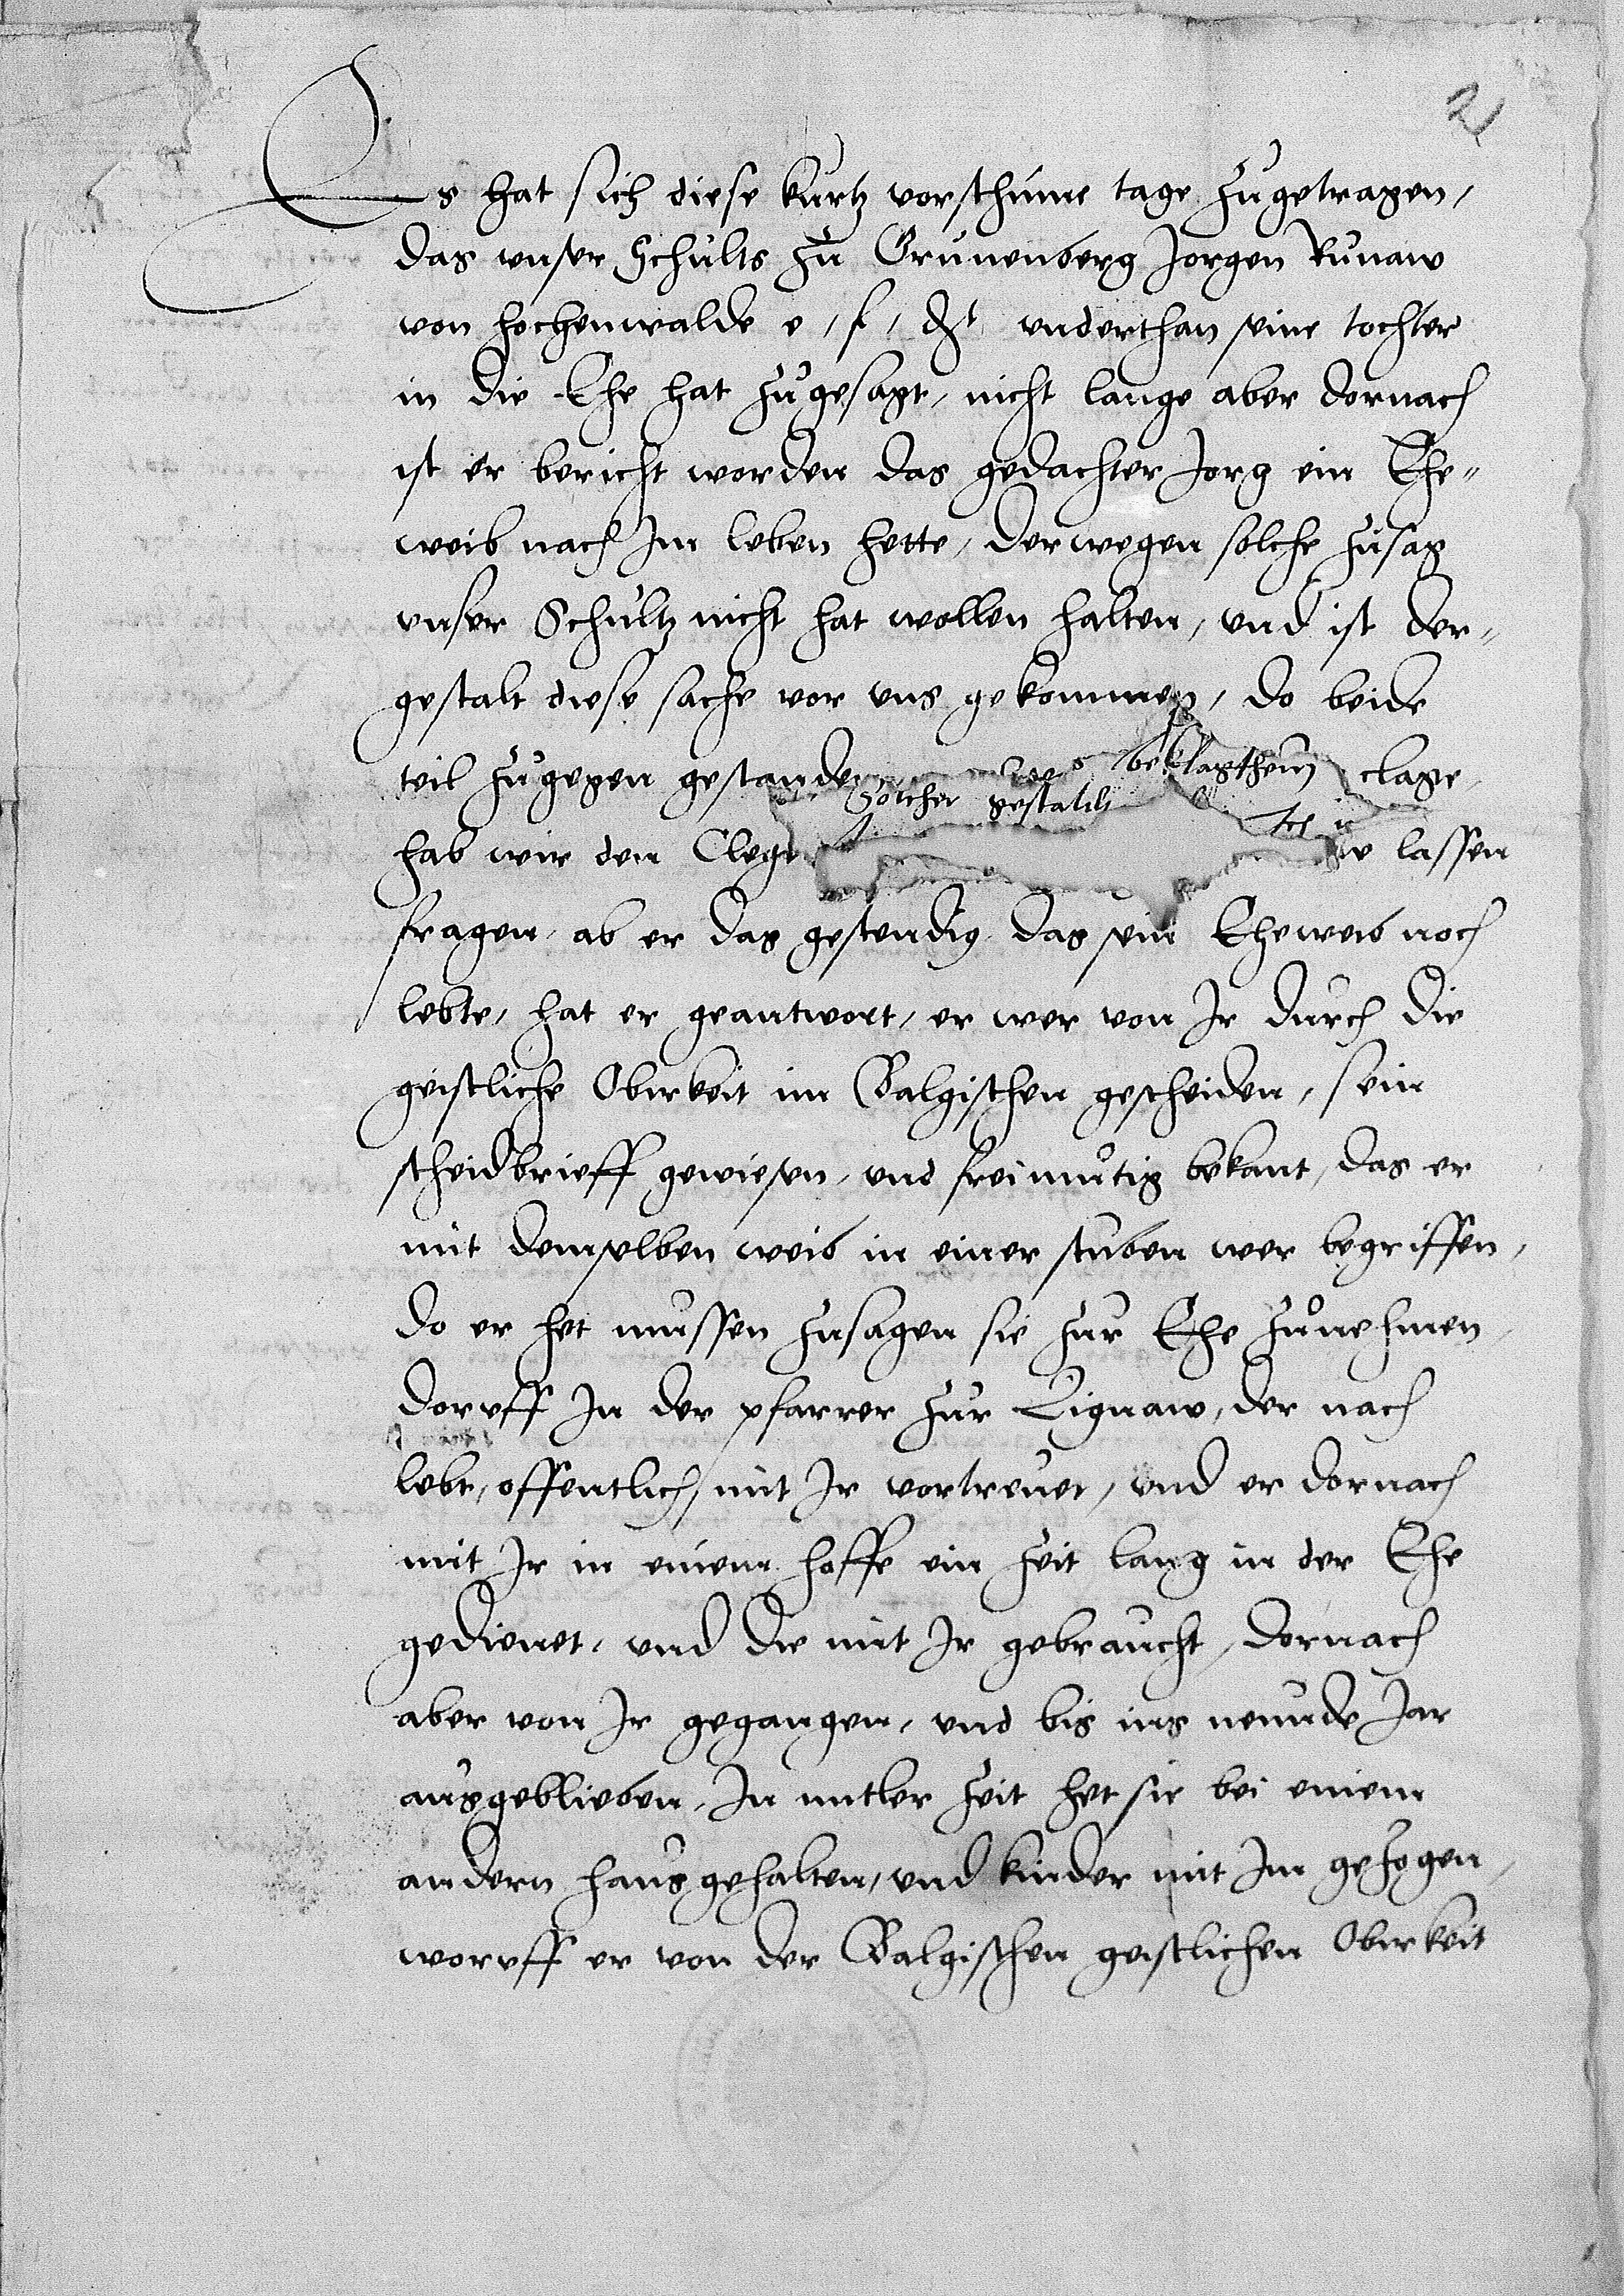 2
Es hat sich diese kurtz vorschinne tage zugetragen,
das vnser Schults zu Grunenberg Jorgen Kunaw
von Hochenwalde e, f, d underthan seine tochter
in die Ehe hat zugesagt, nicht lange aber dornach
ist er bericht worden das gedachter Jorg ein Ehe-
weib nach im leben hette, derwegen solche zusag
vnser Schultz nicht hat wollen halten, vnd ist der-
gestalt diese sache vor vns gekommen, do beide
teil zugegen gestanden beklagthenn clage
solcher gestaldt
hab wir den Cleger lassen
fragen, ab er das gestendig, das sein Eheweib noch
lebte, hat er geantwort, er wer von Ir durch die
geistliche Obirkeit im Balgischen gescheiden, sein
scheidbrieff gewiesen, vnd freimutig bekant, das er
mit demselben weib in einer stuben wer begriffen,
do er het mussen zusagen sie zur Ehe zunehmen,
doruff In der pfarrer zur Lignaw, der nach
lebt, offentlich, mit Ir vortreuet, vnd er dornach
mit Ir in einem hoffe ein zeit lang in der Ehe
gedienet, vnd die mit Ir gebraucht, dornach
aber von Ir gegangen, vnd bis ins neunde Jar
ausgeblieben, In mitler zeit het sie bei einem
andern haus gehalten, vnd kinder mit Im gezogen,
woruff er von der Balgischen geistlichen Obirkeit